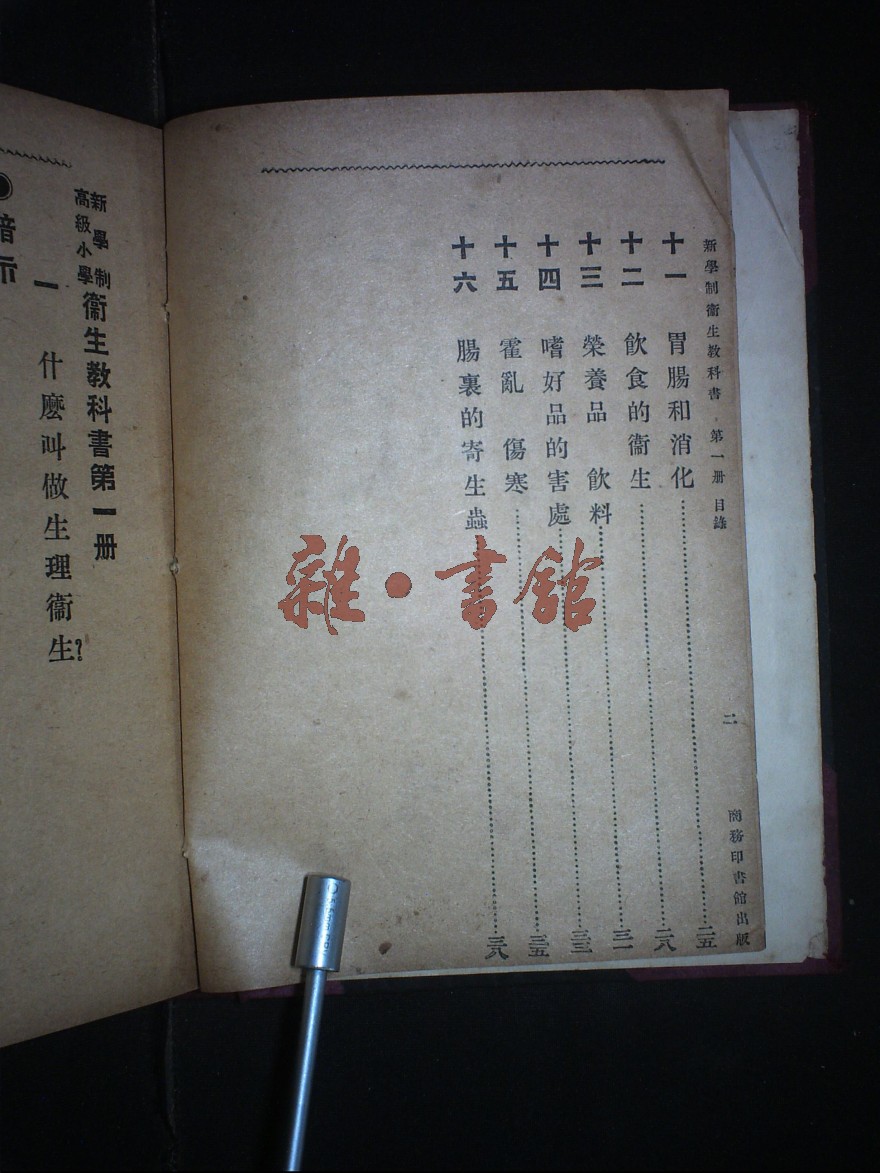 新學制衞生教科書 第一册 目錄
二
商務印書館出版
十一 胃腸和消化 二五
十二 飲食的衞生 二八
十三 榮養品 飲料 三一
十四 嗜好品的害處 三三
十五 霍亂 傷寒 三五
十六 腸裏的寄生蟲 三八
雜·書館
新學制
高級小學
衞生教科書第一册
一 什麽叫做生理衞生?
暗示